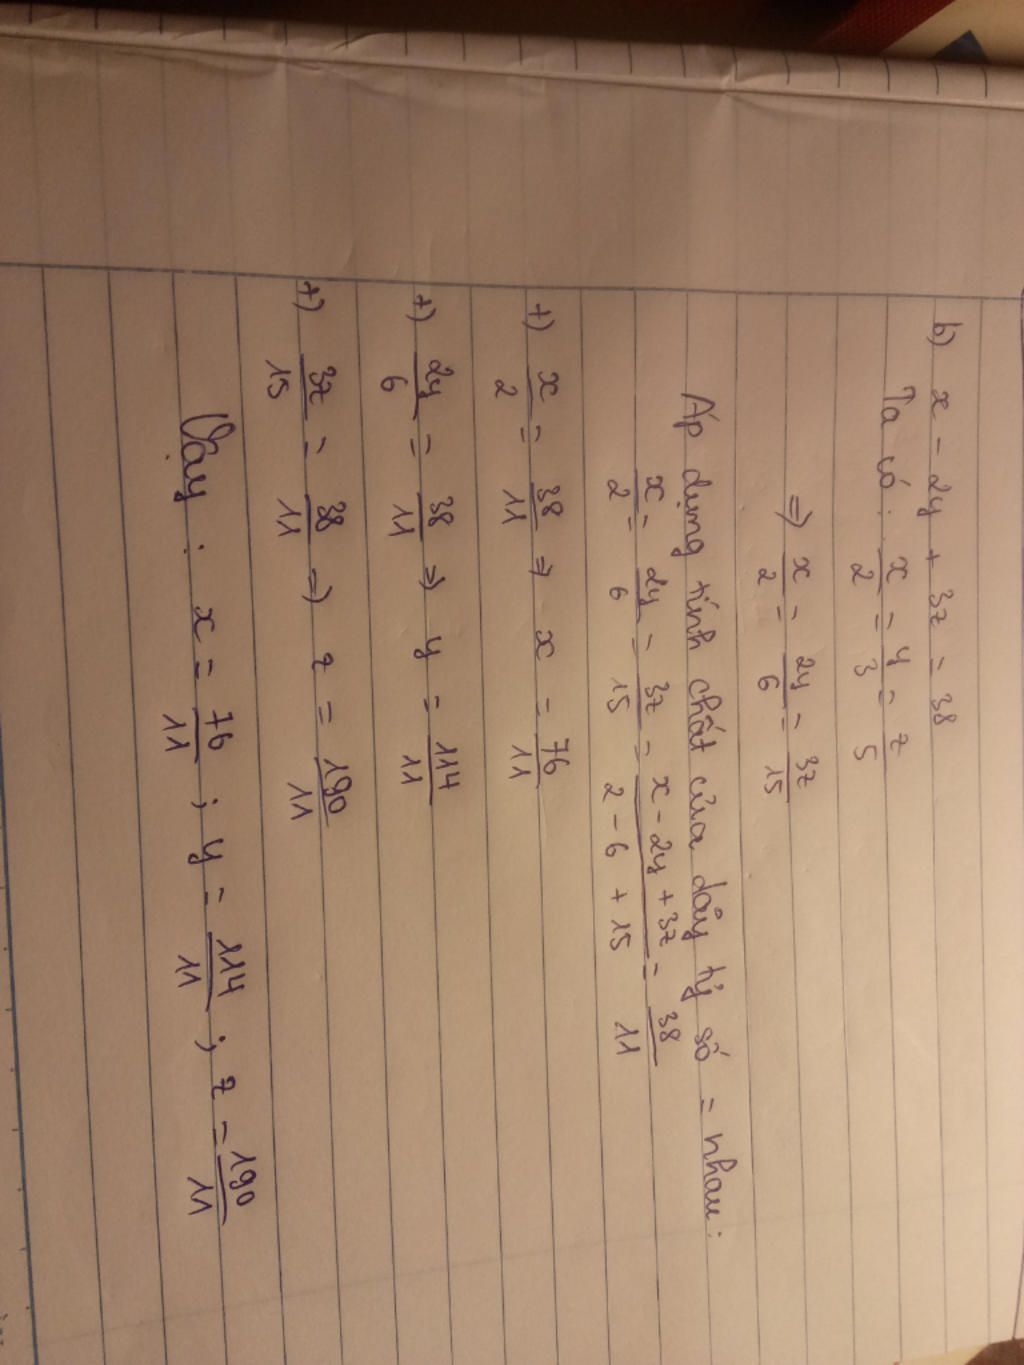 b) x - 2y + 3z = 38
Ta có: x/2 = y/3 = z/5
⇒ x/2 = 2y/6 = 3z/15
Áp dụng tính chất của dãy tỷ số = nhau:
x/2 = 2y/6 = 3z/15 = (x - 2y + 3z)/(2 - 6 + 15) = 38/11
+) x/2 = 38/11 ⇒ x = 76/11
+) 2y/6 = 38/11 ⇒ y = 114/11
+) 3z/15 = 38/11 ⇒ z = 190/11
Vậy: x = 76/11 ; y = 114/11 ; z = 190/11